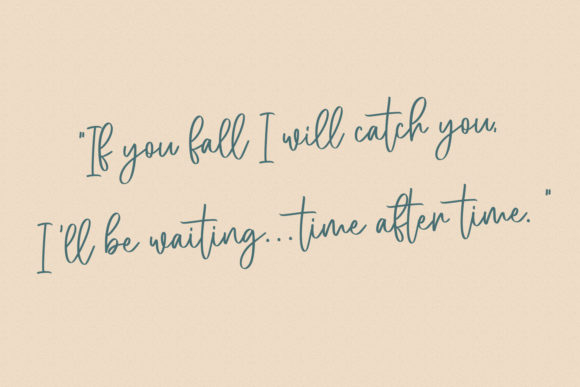 "If you fall I will catch you,
I'll be waiting...time after time. "